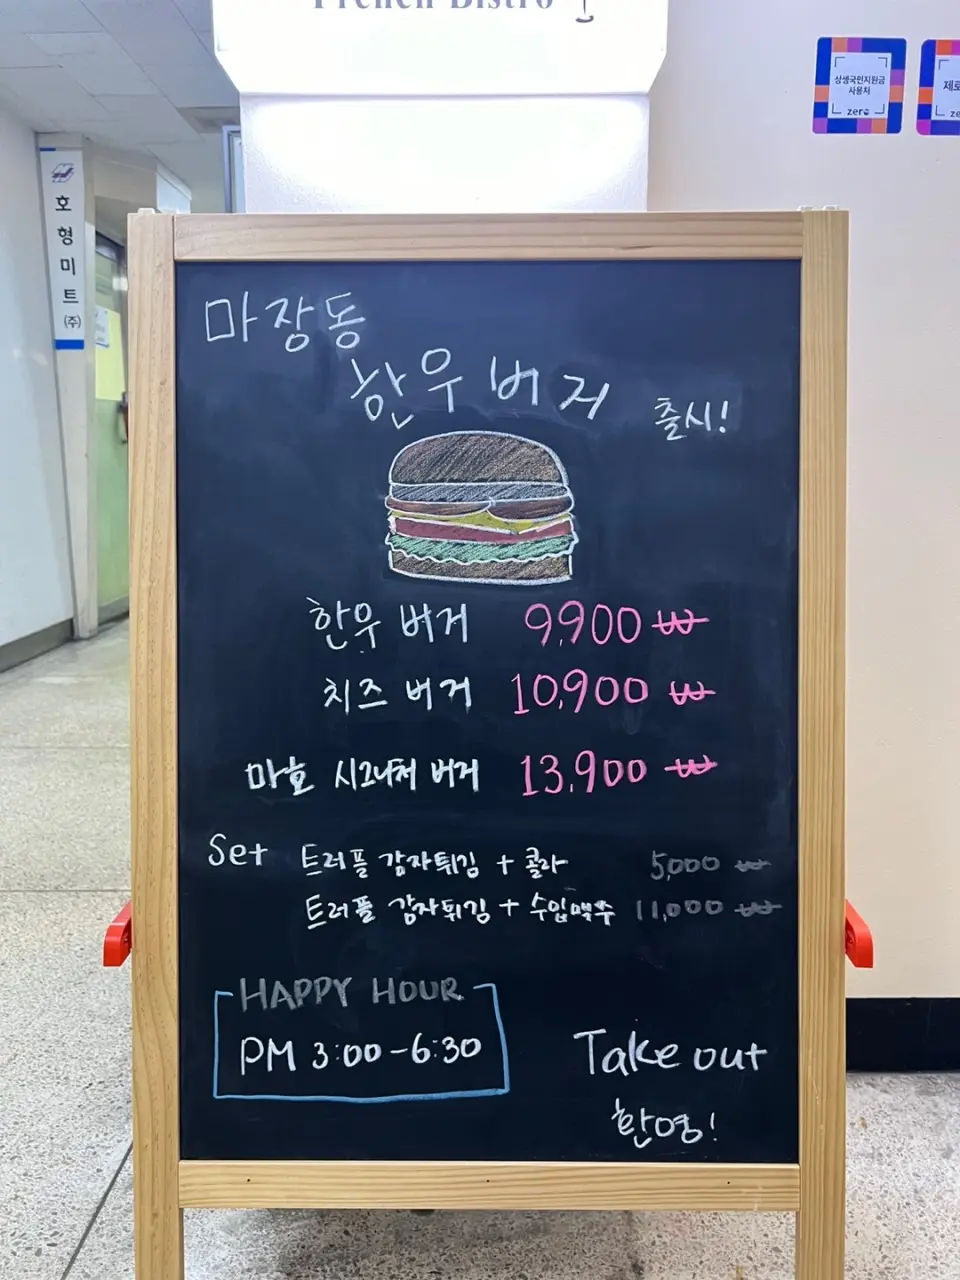 French Bistro
상생국민지원금
사용처
zero
제로
호형미트(주)
마장동
한우버거
출시!
한우 버거 9,900 ₩
치즈 버거 10,900 ₩
마호 시그니처 버거 13,900 ₩
Set 트러플 감자튀김 + 콜라 5,000 ₩
트러플 감자튀김 + 수입맥주 11,000 ₩
HAPPY HOUR
PM 3:00-6:30
Take out
환영!